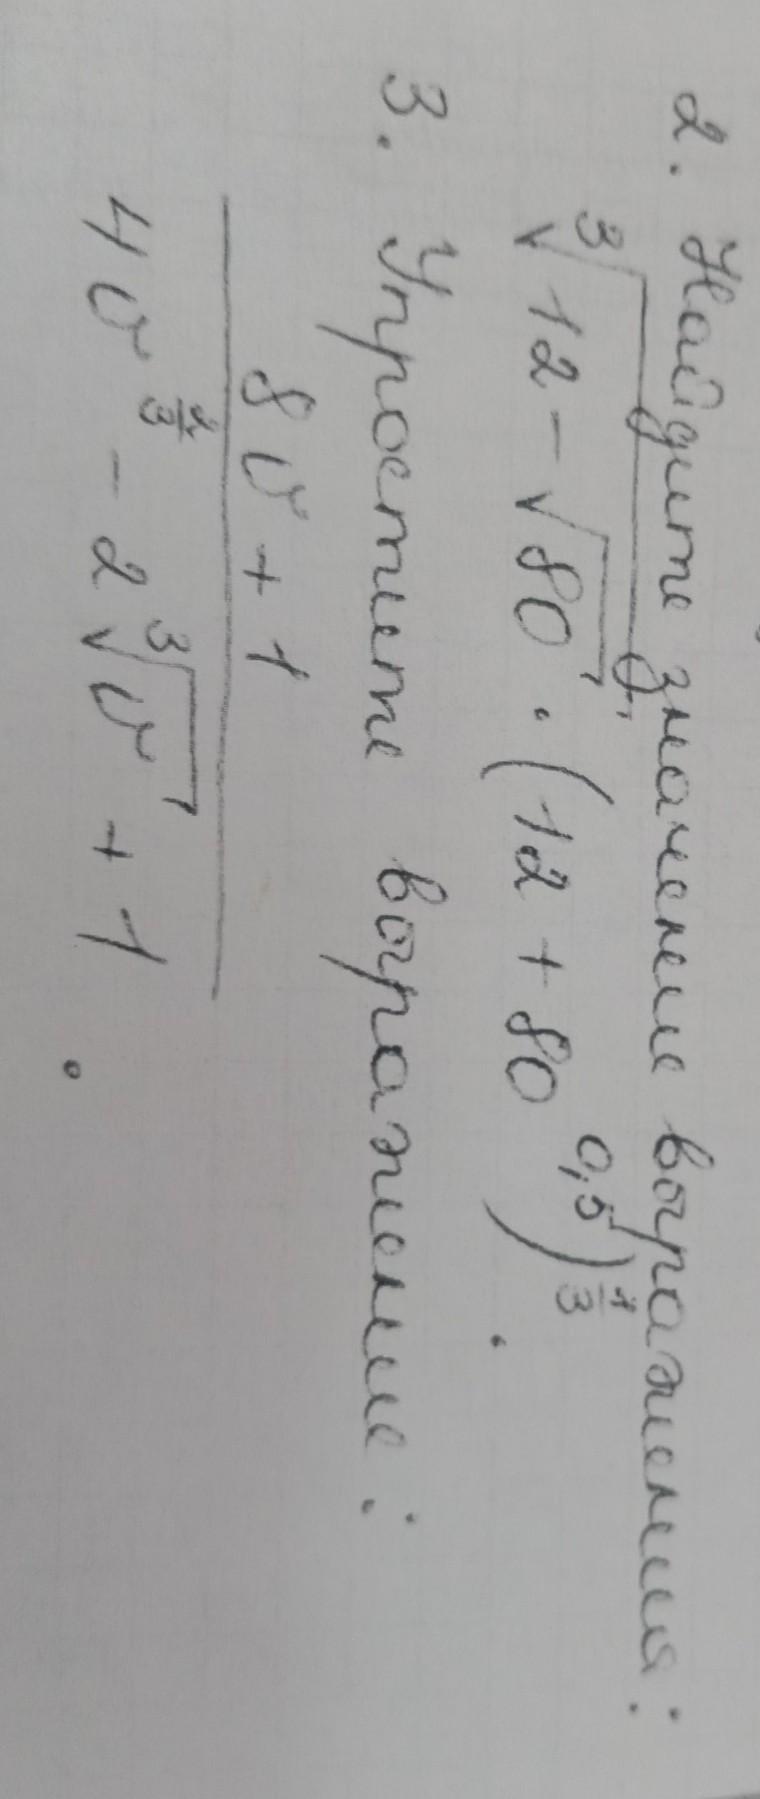 2. Найдите значение выражения:
∛(12 - √80) · (12 + 80^0,5)^(1/3).
3. Упростите выражение:
8v + 1
4v^(2/3) - 2∛v + 1.